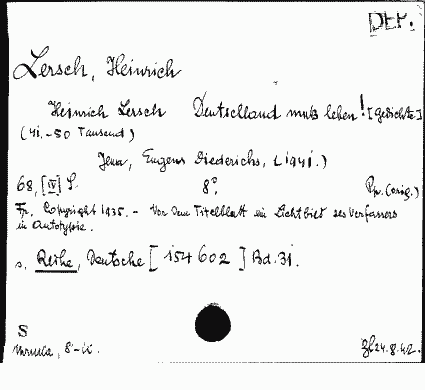 DEP.
Lersch, Heinrich
Heinrich Lersch Deutschland muß leben! [Gedichte.]
(41.-50 Tausend)
Jena, Eugens Diederichs, (1941.)
68, [IV] S. 8°. Pp. (orig.)
Copyright 1935. - Vor dem Titelblatt ein Lichtbild des Verfassers
in Autotypie.
s. Reihe, Deutsche [154602] Bd. 31.
S
8-U. 24.8.42.